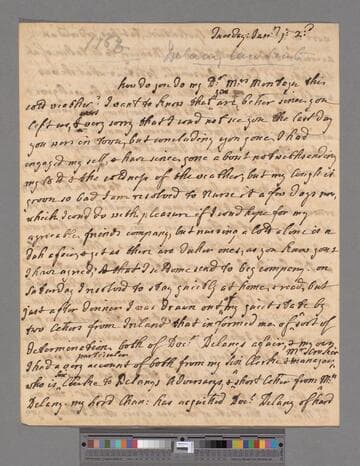 Tuesday. Jan:ry ye 2d
1753
how do you do my Dr Mrs Montagu this
cold weather? I want to know that you are better since you
left us, & very sorry that I coud not see you the last day
you were in town, but concluding you gone, I had
engaged my self, & have since gone about notwithstanding
my cold & the coldness of the weather, but my cough is
grown so bad I am resolved to nurse it a few days now,
which I coud do with pleasure if I coud hope for my
agreeable friends company, but nursing a cold alone is a
dull affair, & yet as there are duller ones, as you know you &
I have agreed, & that I dont send to beg company. on
Saturday I resolved to stay quietly at home, & read, but
just after dinner I was drawn out of my quiet state by
two letters from Ireland that informed me of ye sort of
Determenation both of Docr Delanys affair, & my own
I had a very particular account of both from my
who is Clerke to Delanys Adversary, & a short letter from Mrs
Delany. my Lord Chan: has acquitted Docr Delany of hard